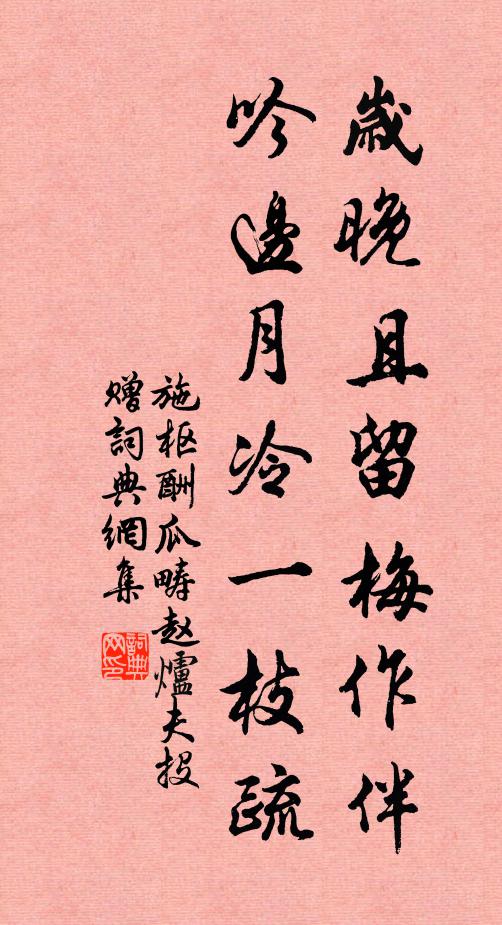 歲晚且留梅作伴
吟邊月冷一枝疏
施枢酬瓜疇赵爐夫投
赠詞典網集
詞典网印